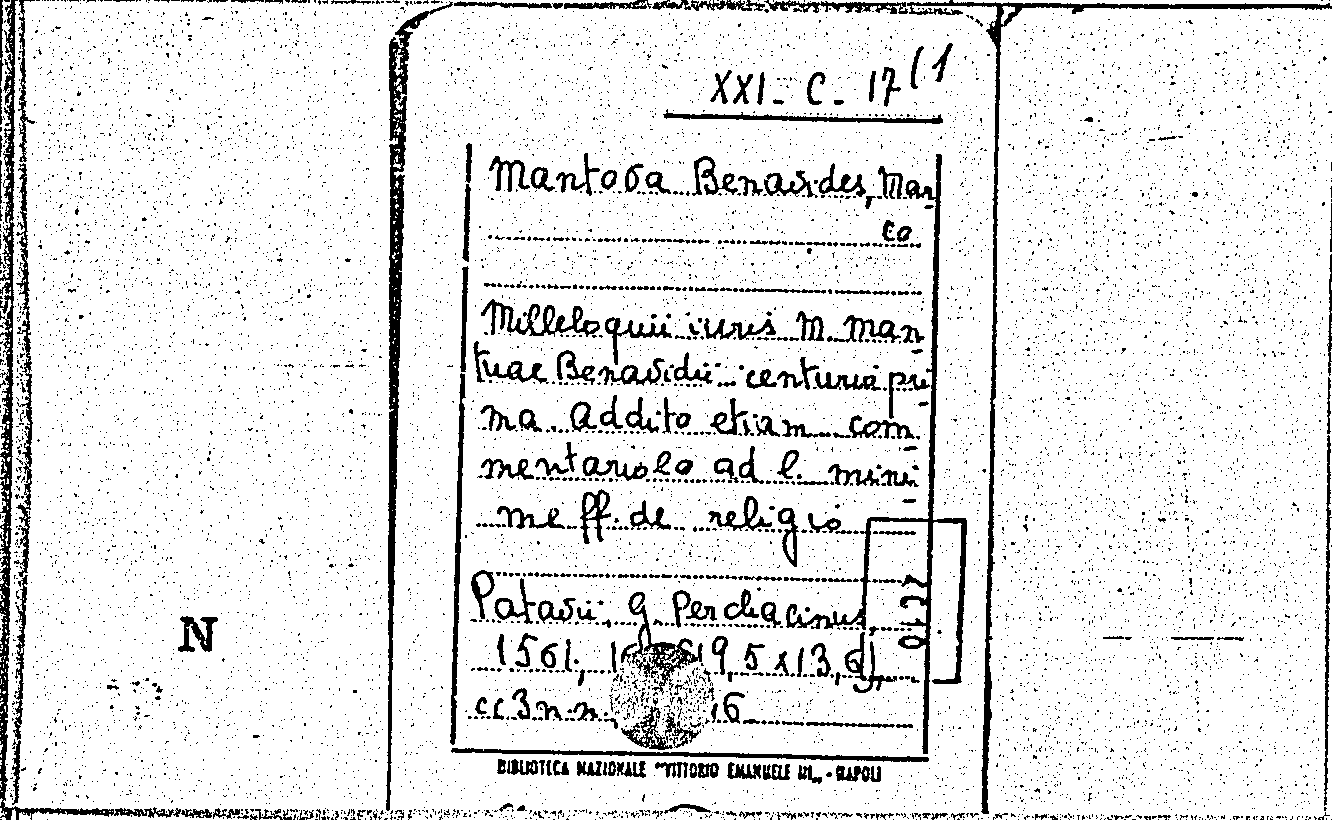 XXI- C- 17 (1
Mantova Benavides, Mar-
co
Milleloquii iuris M. Man-
tuae Benavidii centuria pri-
ma. Addito etiam com-
mentariolo ad l. mini-
me ff. de religio
Patavii, G. Perchacinus,
1561, 16 (19,5 x 13,6),
cc 3 n.n., 16
BIBLIOTECA NAZIONALE "VITTORIO EMANUELE III" - NAPOLI
N